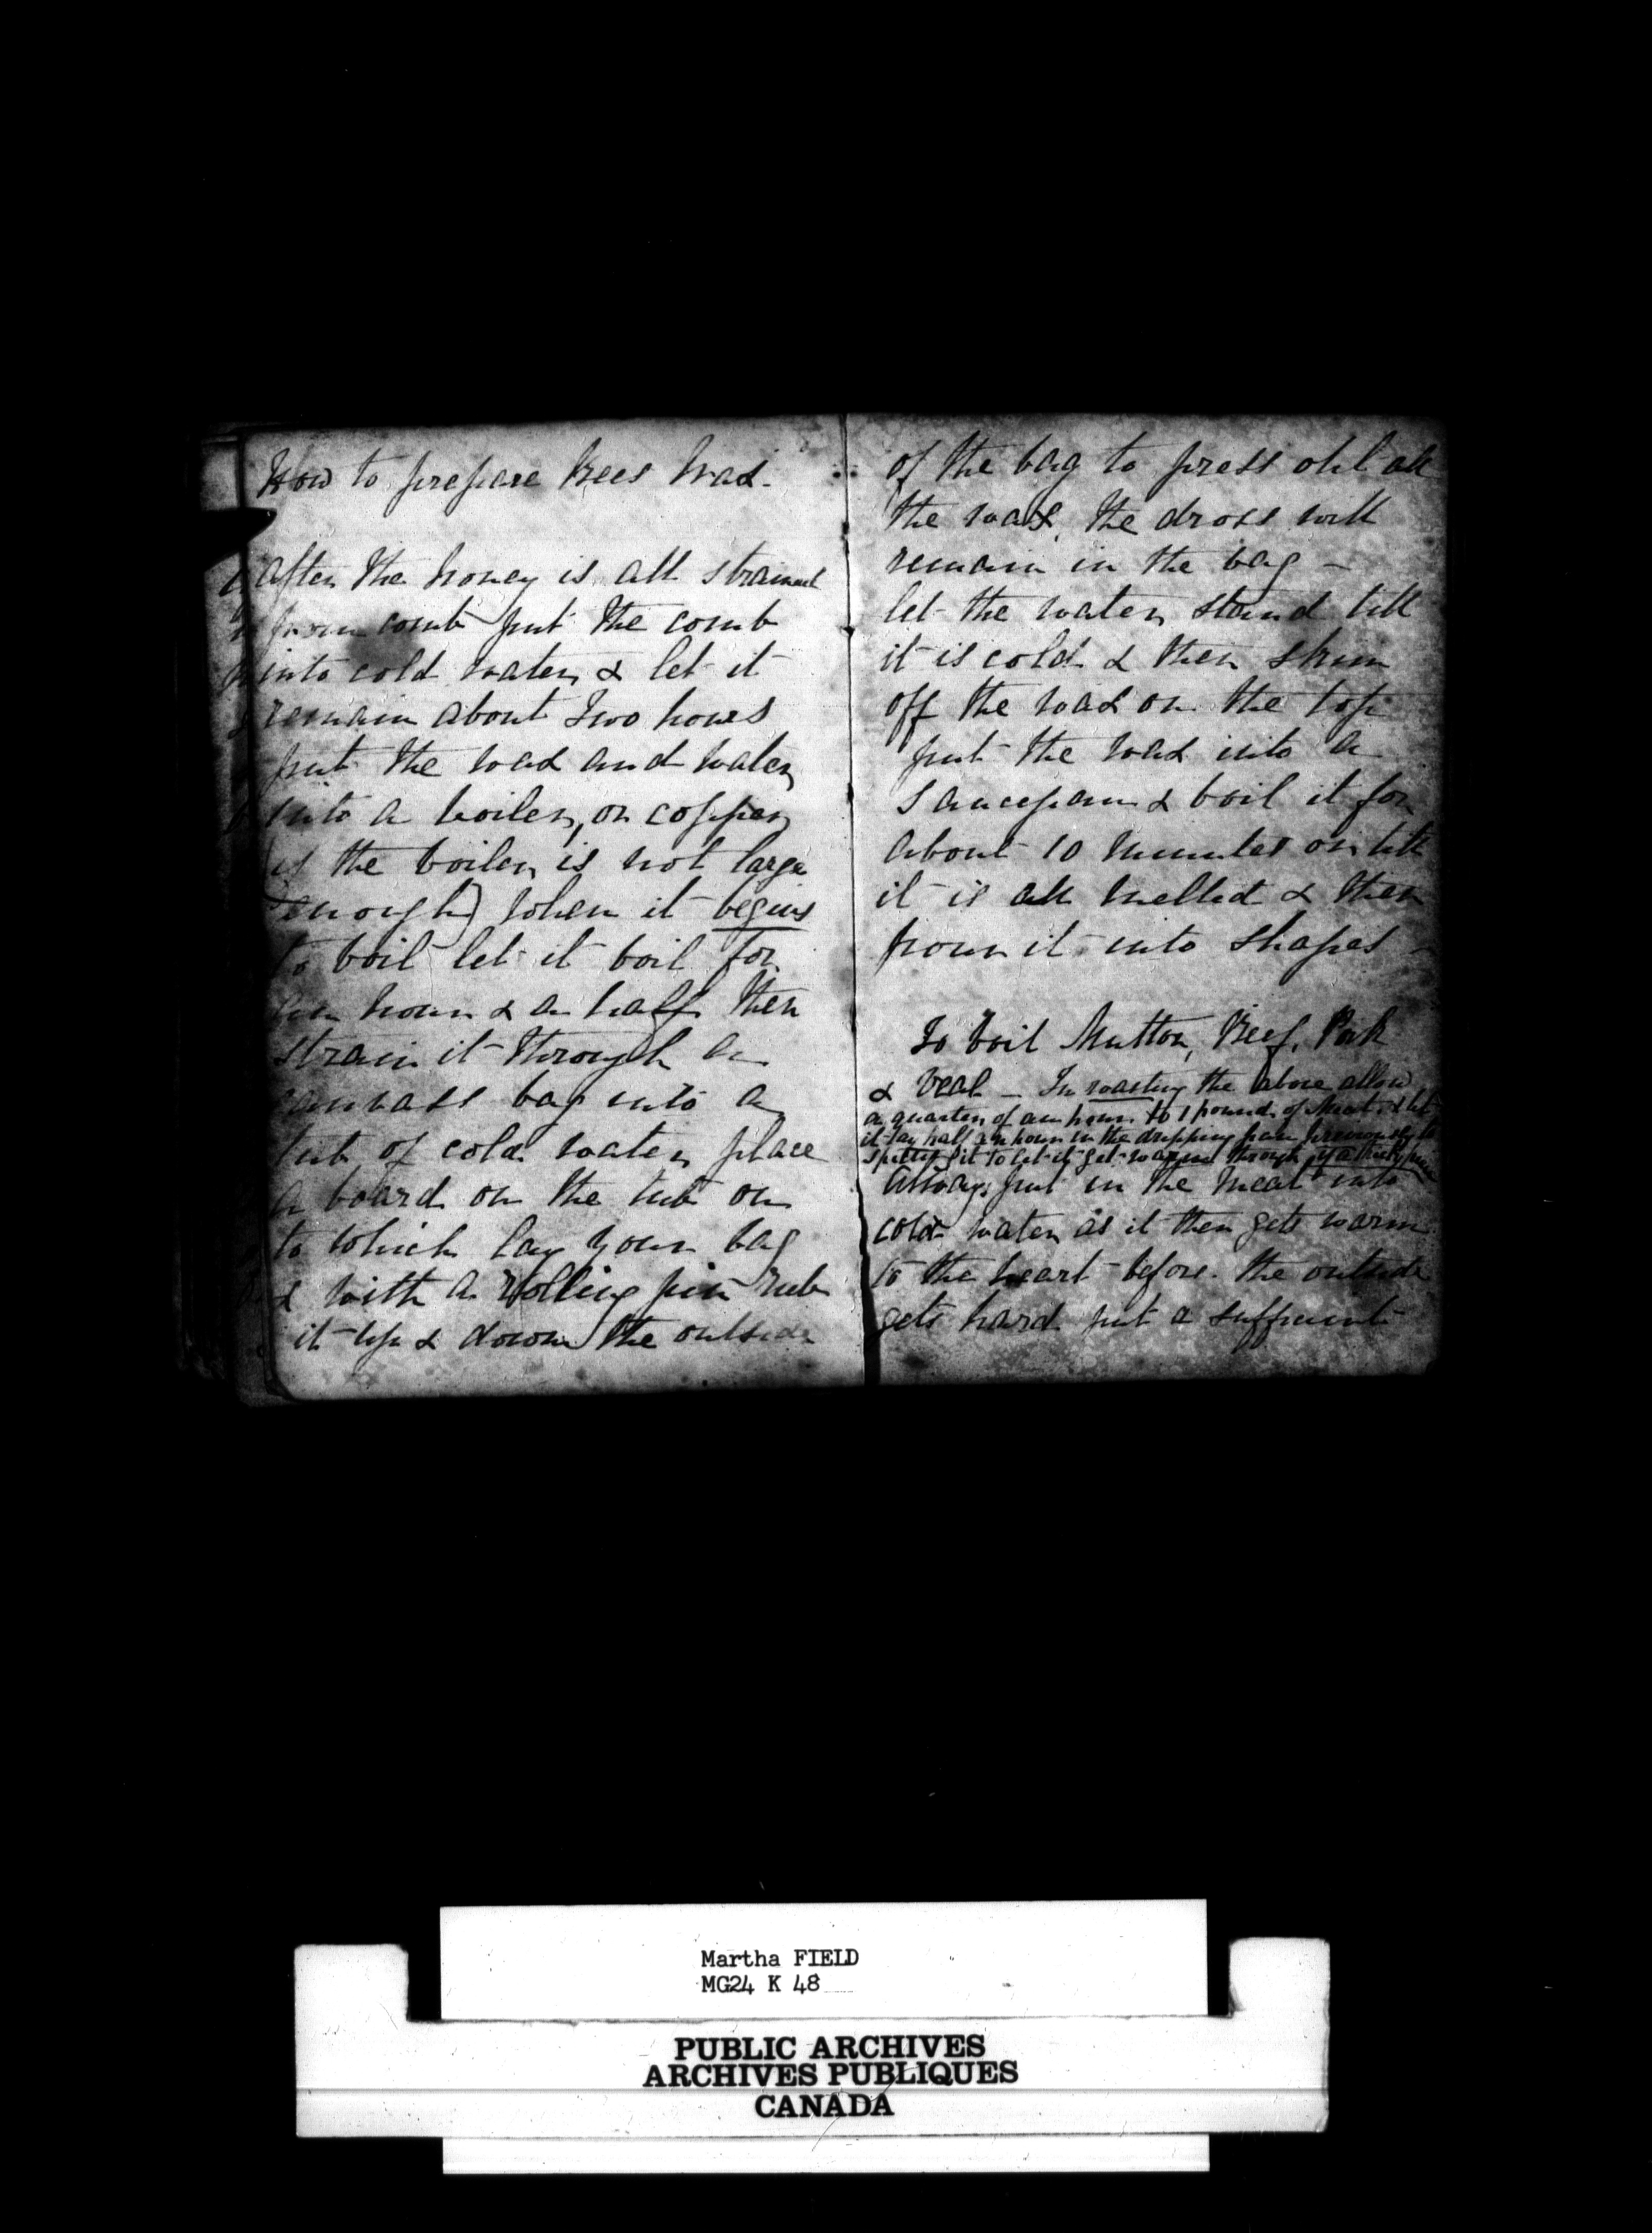 How to prepare Bees Wax.
After the honey is all strained
from comb put the comb
into cold water & let it
remain about Two hours
put the wax and water
into a boiler, or copper
if the boiler is not large
enough) when it begins
to boil let it boil for
an hour & a half then
strain it through a
canvass bag into a
tub of cold water place
a board on the tub on
to which lay your bag
& with a rolling pin rub
it up & down the outside
of the bag to press out all
the wax, the dross will
remain in the bag -
let the water stand till
it is cold & then skim
off the wax on the top
put the wax into a
saucepan & boil it for
about 10 minutes or till
it is all melted & then
pour it into shapes -
To boil Mutton, Beef, Pork
& Veal - In roasting the above allow
a quarter of an hour to 1 pound of Meat & let
it lay half an hour in the dripping pan previously to
spitting it to let it get warmed through if a thick piece
Always put in the meat into
cold water as it then gets warm
to the heart before the outside
gets hard put a sufficient
Martha FIELD
MG24 K 48
PUBLIC ARCHIVES
ARCHIVES PUBLIQUES
CANADA